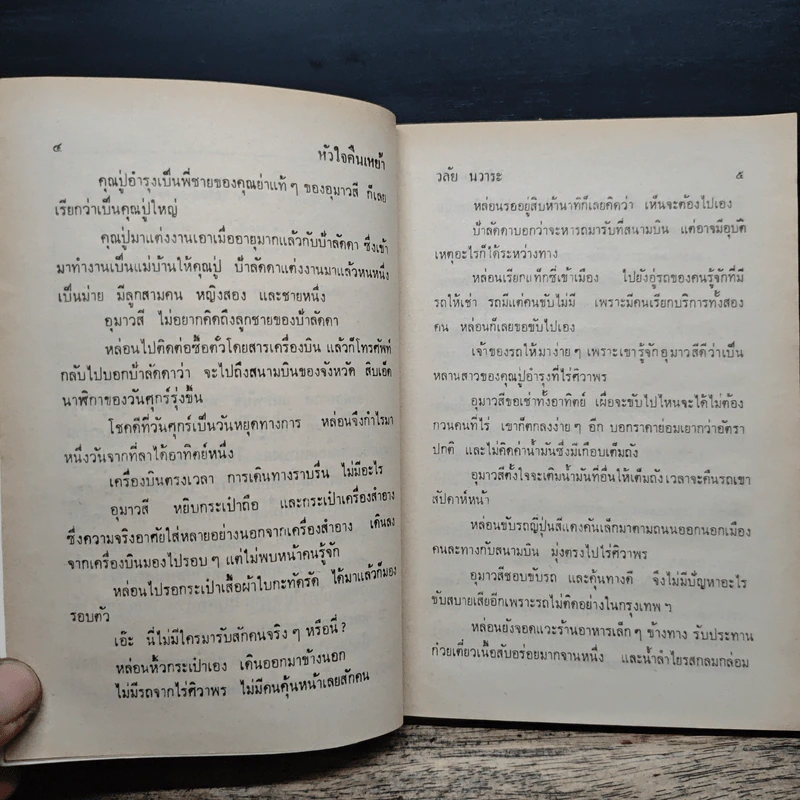 ๔
หัวใจคืนเหย้า
คุณปู่อำรุงเป็นพี่ชายของคุณย่าแท้ๆ ของอุมาวสี ก็เลย
เรียกว่าเป็นคุณปู่ใหญ่
คุณปู่มาแต่งงานเอาเมื่ออายุมากแล้วกับป้าลัดดา ซึ่งเข้า
มาทำงานเป็นแม่บ้านให้คุณปู่ ป้าลัดดาแต่งงานมาแล้วหนหนึ่ง
เป็นม่าย มีลูกสามคน หญิงสอง และชายหนึ่ง
อุมาวสี ไม่อยากคิดถึงลูกชายของป้าลัดดา
หล่อนไปติดต่อซื้อตั๋วโดยสารเครื่องบิน แล้วก็โทรศัพท์
กลับไปบอกป้าลัดดาว่า จะไปถึงสนามบินของจังหวัด สิบเอ็ด
นาฬิกาของวันศุกร์รุ่งขึ้น
โชคดีที่วันศุกร์เป็นวันหยุดทางการ หล่อนจึงกำไรมา
หนึ่งวันจากที่ลาได้อาทิตย์หนึ่ง
เครื่องบินตรงเวลา การเดินทางราบรื่น ไม่มีอะไร
อุมาวสี หยิบกระเป๋าถือ และกระเป๋าเครื่องสำอาง
ซึ่งความจริงอาศัยใส่หลายอย่างนอกจากเครื่องสำอาง เดินลง
จากเครื่องบินมองไปรอบๆ แต่ไม่พบหน้าคนรู้จัก
หล่อนไปรอกระเป๋าเสื้อผ้าใบกะทัดรัด ได้มาแล้วก็มอง
รอบตัว
เอ๊ะ นี่ไม่มีใครมารับสักคนจริงๆ หรือนี่?
หล่อนหิ้วกระเป๋าเอง เดินออกมาข้างนอก
ไม่มีรถจากไร่ศิวาพร ไม่มีคนคุ้นหน้าเลยสักคน
วลัย นวาระ
๕
หล่อนรออยู่สิบห้านาทีก็เลยคิดว่า เห็นจะต้องไปเอง
ป้าลัดดาบอกว่าจะหารถมารับที่สนามบิน แต่อาจมีอุบัติ
เหตุอะไรก็ได้ระหว่างทาง
หล่อนเรียกแท็กซี่เข้าเมือง ไปยังอู่รถของคนรู้จักที่มี
รถให้เช่า รถมีแต่คนขับไม่มี เพราะมีคนเรียกบริการทั้งสอง
คน หล่อนก็เลยขอขับไปเอง
เจ้าของรถให้มาง่ายๆ เพราะเขารู้จักอุมาวสีดีว่าเป็น
หลานสาวของคุณปู่อำรุงที่ไร่ศิวาพร
อุมาวสีขอเช่าทั้งอาทิตย์ เผื่อจะขับไปไหนจะได้ไม่ต้อง
กวนคนที่ไร่ เขาก็ตกลงง่ายๆ อีก บอกราคาย่อมเยากว่าอัตรา
ปกติ และไม่คิดค่าน้ำมันซึ่งมีเกือบเต็มถัง
อุมาวสีตั้งใจจะเติมน้ำมันที่อื่นให้เต็มถัง เวลาจะคืนรถเขา
สัปดาห์หน้า
หล่อนขับรถญี่ปุ่นสีแดงคันเล็กมาตามถนนออกนอกเมือง
คนละทางกับสนามบิน มุ่งตรงไปไร่ศิวาพร
อุมาวสีชอบขับรถ และคุ้นทางดี จึงไม่มีปัญหาอะไร
ขับสบายเสียอีกเพราะรถไม่ติดอย่างในกรุงเทพฯ
หล่อนยังจอดแวะร้านอาหารเล็กๆ ข้างทาง รับประทาน
ก๋วยเตี๋ยวเนื้อสับอร่อยมากจานหนึ่ง และน้ำลำไยรสกลมกล่อม